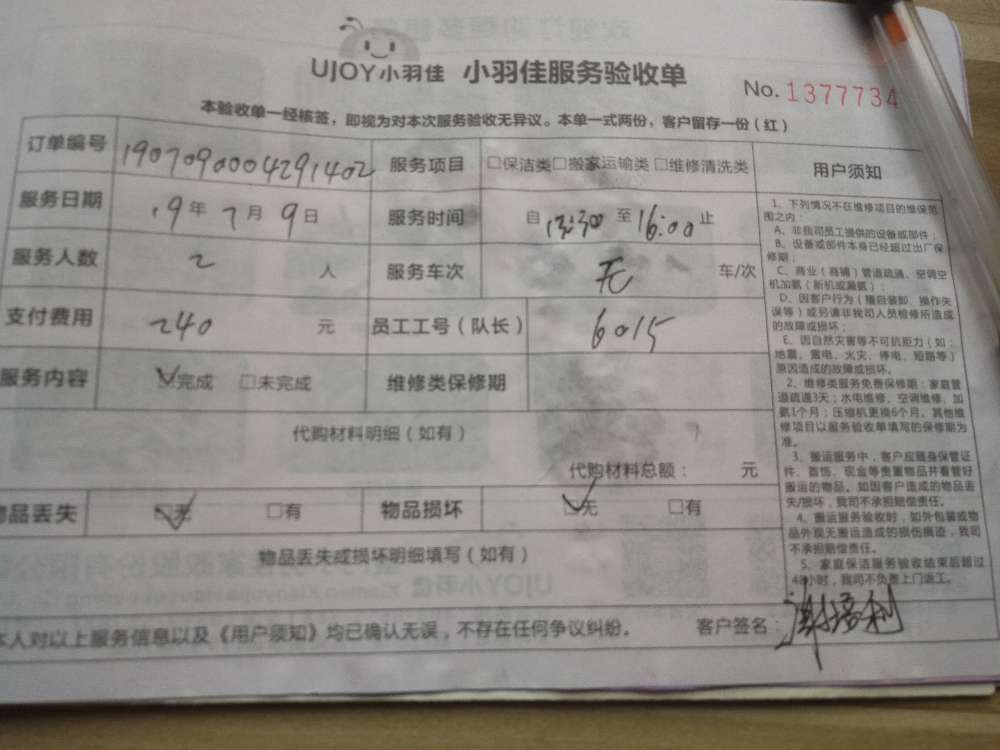 UJOY小羽佳 小羽佳服务验收单
No. 1377734
本验收单一经核签，即视为对本次服务验收无异议。本单一式两份，客户留存一份（红）
订单编号 1907090004291402 服务项目 □保洁类□搬家运输类□维修清洗类
服务日期 19年7月9日 服务时间 自13:30至16:00止
服务人数 2人 服务车次 无 车/次
支付费用 240元 员工工号（队长） 6015
服务内容 ☑完成 □未完成 维修类保修期
代购材料明细（如有）
代购材料总额： 元
物品丢失 ☑无 □有 物品损坏 ☑无 □有
物品丢失或损坏明细填写（如有）
本人对以上服务信息以及《用户须知》均已确认无误，不存在任何争议纠纷。 客户签名：谢培利
用户须知
1、下列情况不在维修项目的维保范
围之内：
A、非我司员工提供的设备或部件；
B、设备或部件本身已经超过出厂保
修期；
C、商业（商铺）管道疏通、空调空
机加氨（新机或漏氨）；
D、因客户行为（擅自装卸、操作失
误等）或另请非我司人员检修所造成
的故障或损坏；
E、因自然灾害等不可抗拒力（如：
地震、雷电、火灾、停电、短路等）
原因造成的故障或损坏。
2、维修类服务免费保修期：家庭管
道疏通3天；水电维修、空调维修、加
氨1个月；压缩机更换6个月。其他维
修项目以服务验收单填写的保修期为
准。
3、搬运服务中，客户应随身保管证
件、首饰、现金等贵重物品并看管好
搬运的物品。如因客户造成的物品丢
失/损坏，我司不承担赔偿责任。
4、搬运服务验收时，如外包装或物
品外观无搬运造成的损伤痕迹，我司
不承担赔偿责任。
5、家庭保洁服务验收结束后超过
48小时，我司不负责上门返工。